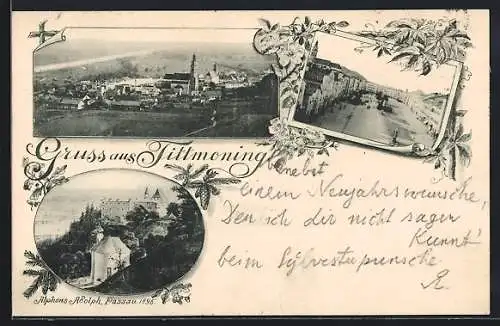 Gruss aus Tittmoning
nebst
einem Neujahrswunsche,
Den ich dir nicht sagen
kunnt'
beim Sylvesterpunsche
R.
Alphons Adolph, Passau 1896